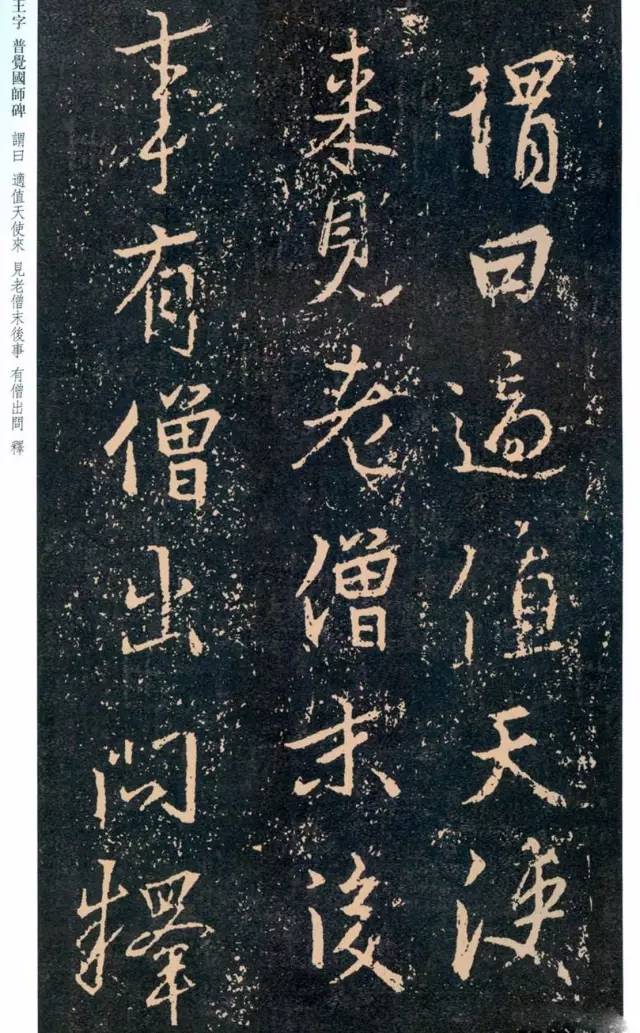 謂曰適值天使
来見老僧末後
事有僧出問釋
王字 普覺國師碑 謂曰 適值天使來 見老僧末後事 有僧出問 釋